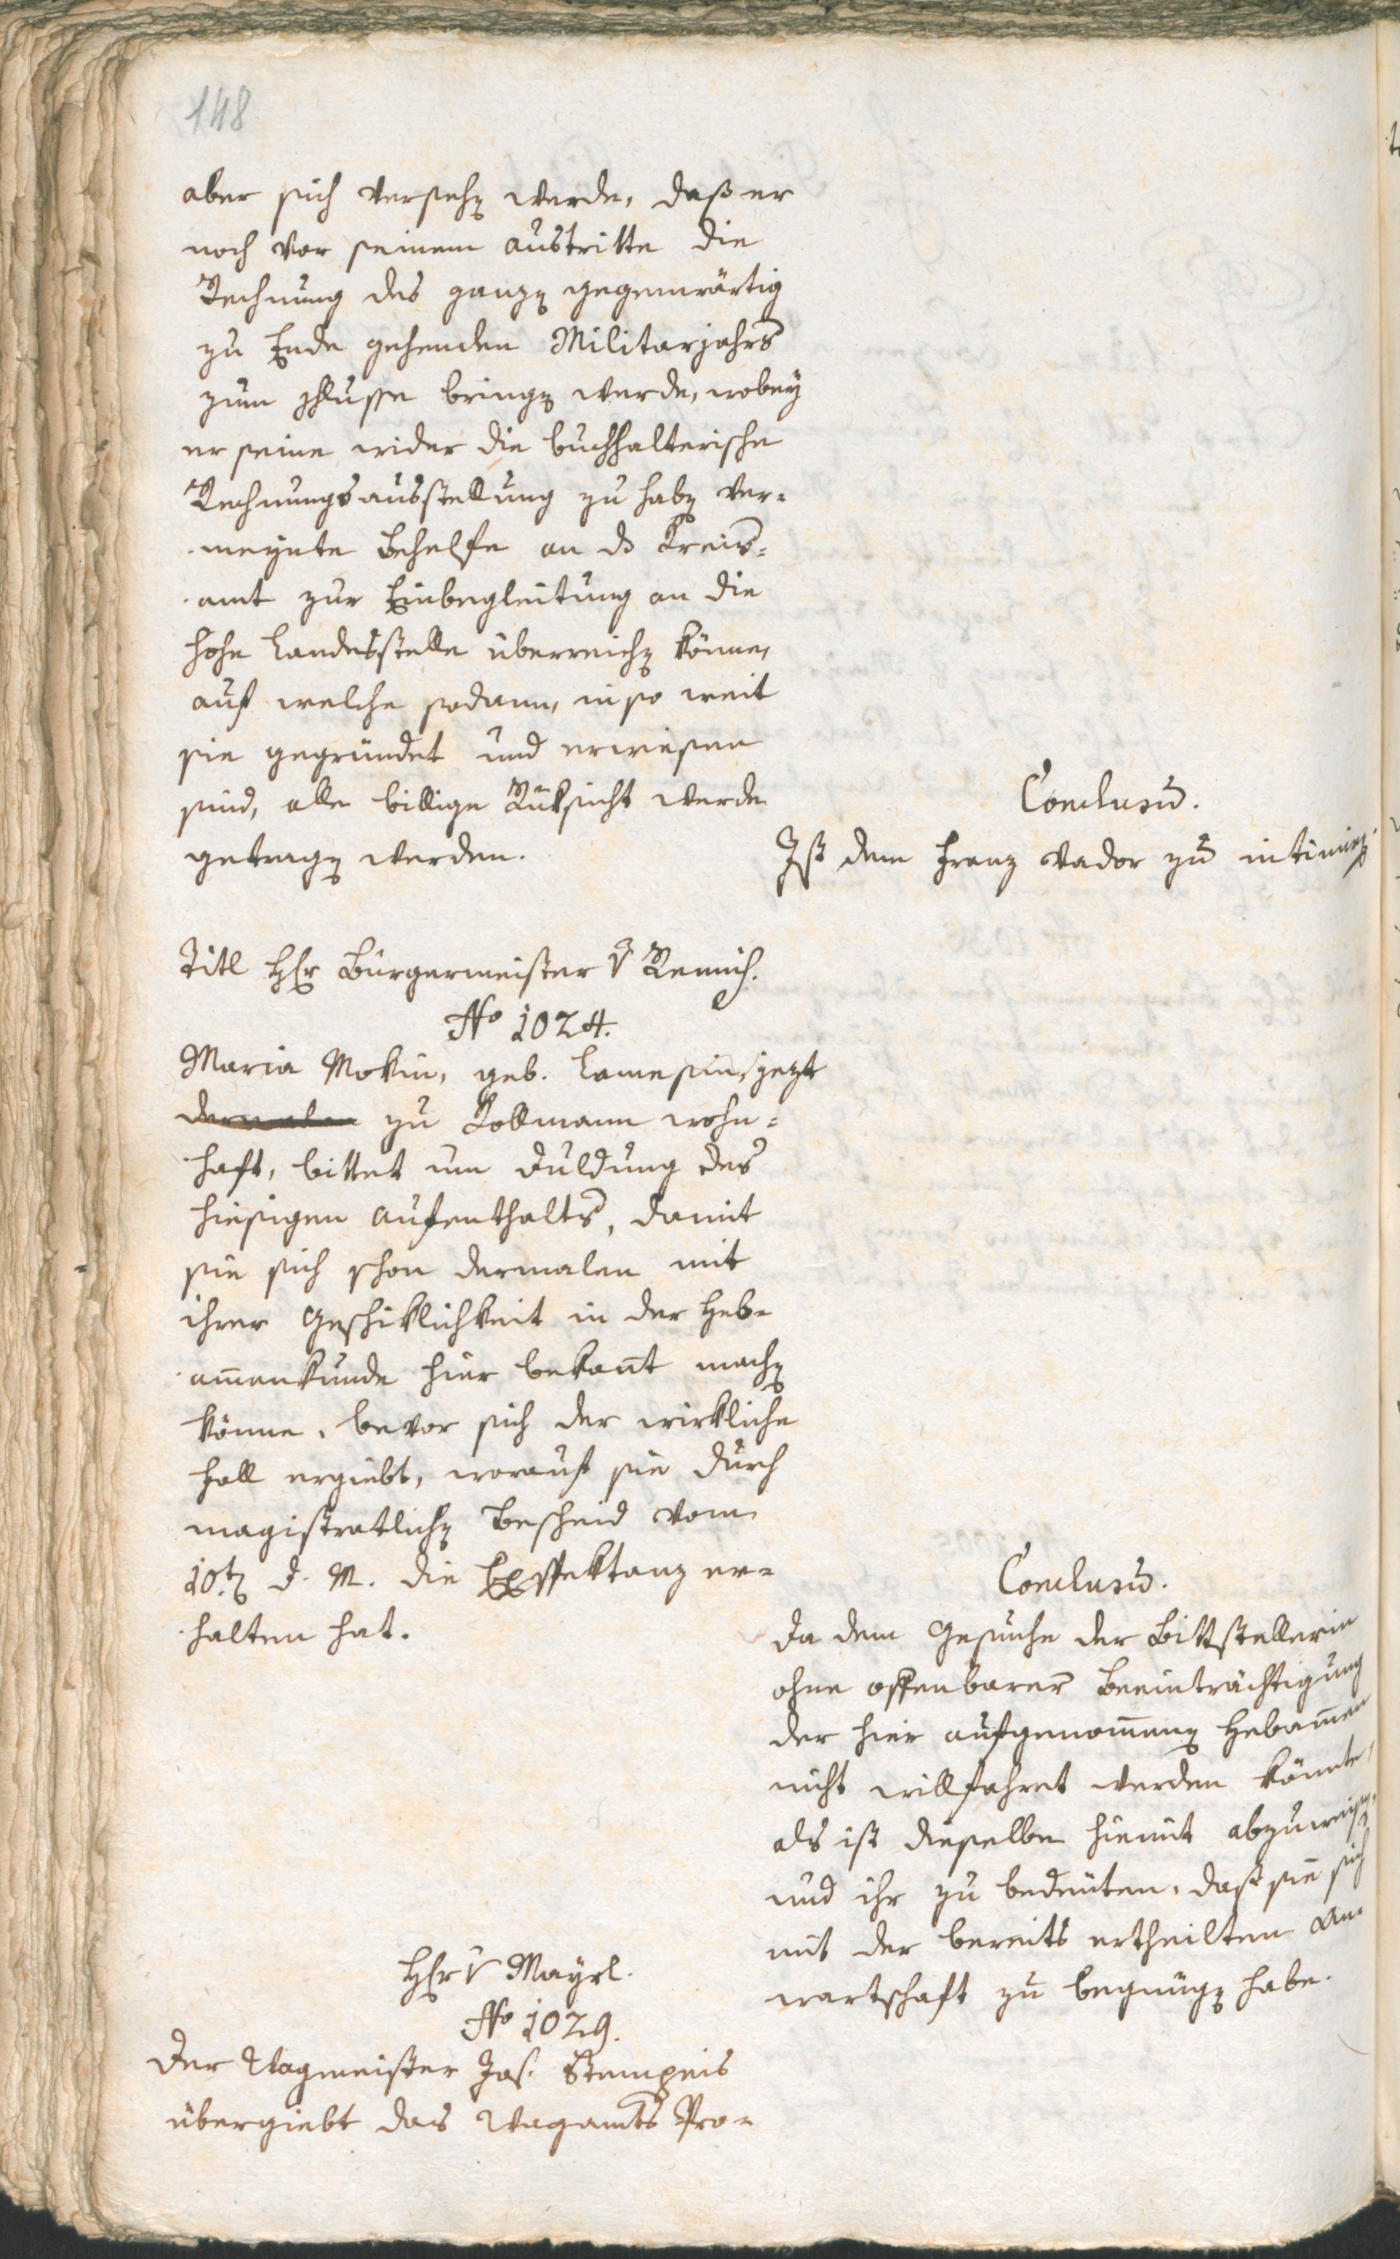 148
aber sich versehen werde, daß er
noch vor seinem Austritte die
Rechnung des ganzen gegenwärtig
zu Ende gehenden Militarjahrs
zum Schlusse bringen werde, wobey
er seine wider die buchhalterische
Rechnungsausstellung zu haben ver=
meynte Behelfe an das Kreis=
amt zur Einbegleitung an die
hohe Landesstelle überreichen könne,
auf welche sodann, in so weit
sie gegründet und erwiesen
sind, alle billige Rüksicht werde
getragen werden.
Conclusum.
Ist dem Franz Vador zu intimiren.
Titl Herr Bürgermeister v Remich.
No 1024.
Maria Mokin, geb. Lamesin, jezt
dermalen zu Kollmann wohn=
haft, bittet um Duldung des
hiesigen Aufenthalts, damit
sie sich schon dermalen mit
ihrer Geschiklichkeit in der Heb=
ammenkunde hier bekannt machen
könne, bevor sich der wirkliche
Fall ergiebt, worauf sie durch
magistratlichen Bescheid vom
10ten d. M. die Exspektanz er=
halten hat.
Conclusum.
Da dem Gesuche der Bittstellerin
ohne offenbarer Beeinträchtigung
der hier aufgenommenen Hebammen
nicht willfahret werden könnte,
als ist dieselbe hiemit abzuweisen,
und ihr zu bedeuten, daß sie sich
mit der bereits ertheilten An=
wartschaft zu begnügen habe.
Herr v Mayrl.
No 1029.
Der Wagmeister Jos. Stempeis
übergiebt das Wagamts Pro=